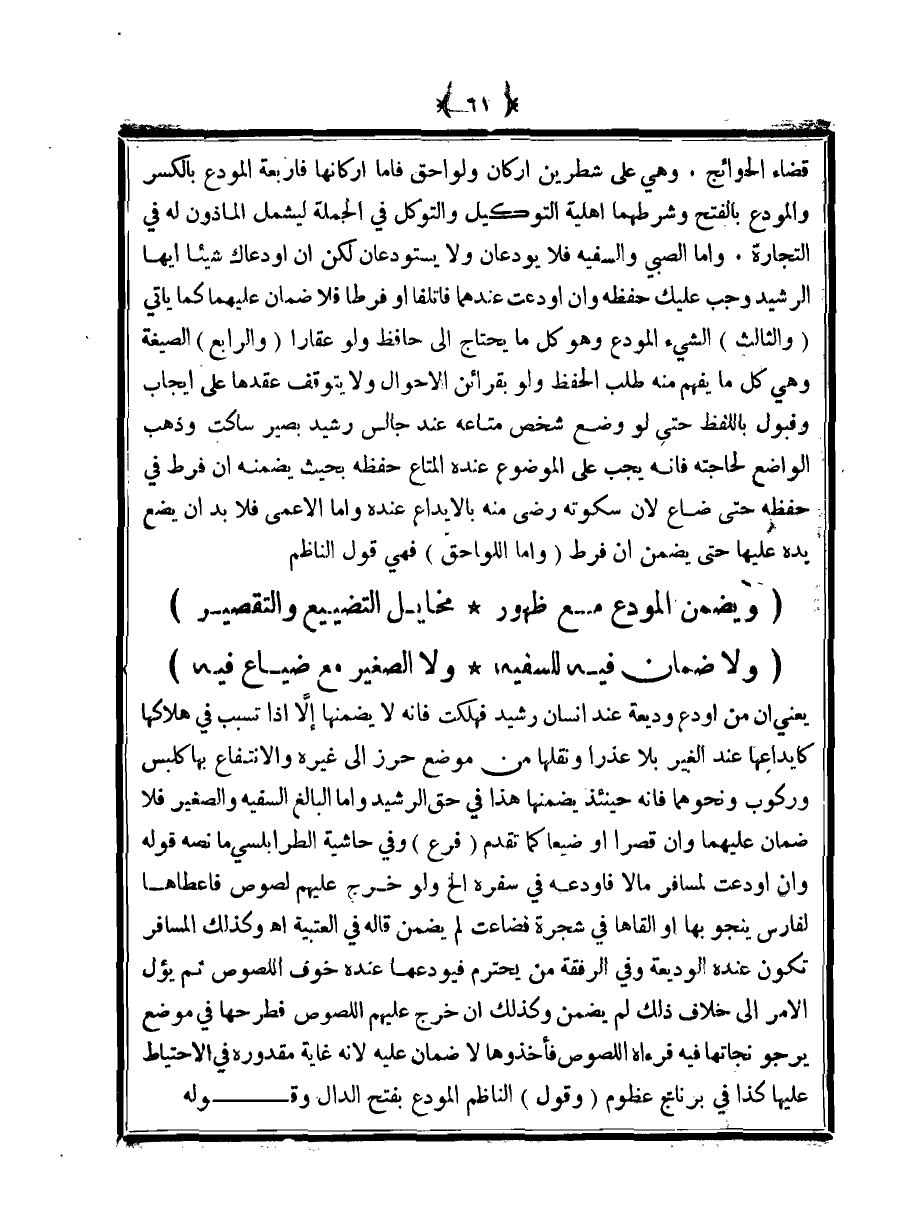 ﴿ ٦١ ﴾
قضاء الحوائج . وهي على شطرين اركان ولواحق فاما اركانها فاربعة المودع بالكسر
والمودع بالفتح وشرطهما اهلية التوكيل والتوكل في الجملة ليشمل الماذون له في
التجارة . واما الصبي والسفيه فلا يودعان ولا يستودعان لكن ان اودعاك شيئا ايها
الرشيد وجب عليك حفظه وان اودعت عندهما فاتلفا او فرطا فلا ضمان عليهما كما ياتي
( والثالث ) الشيء المودع وهو كل ما يحتاج الى حافظ ولو عقارا ( والرابع ) الصيغة
وهي كل ما يفهم منه طلب الحفظ ولو بقرائن الاحوال ولا يتوقف عقدها على ايجاب
وقبول باللفظ حتى لو وضع شخص متاعه عند جالس رشيد بصير ساكت وذهب
الواضع لحاجته فانه يجب على الموضوع عنده المتاع حفظه بحيث يضمنه ان فرط في
حفظه حتى ضاع لان سكوته رضى منه بالايداع عنده واما الاعمى فلا بد ان يضع
يده عليها حتى يضمن ان فرط ( واما اللواحق ) فهي قول الناظم
( ويضمن المودع مع ظهور * مخايل التضييع والتقصير )
( ولا ضمان فيه للسفيه * ولا الصغير مع ضياع فيه )
يعني ان من اودع وديعة عند انسان رشيد فهلكت فانه لا يضمنها إلّا اذا تسبب في هلاكها
كايداعها عند الغير بلا عذرا ونقلها من موضع حرز الى غيره والانتفاع بها كلبس
وركوب ونحوهما فانه حينئذ يضمنها هذا في حق الرشيد واما البالغ السفيه والصغير فلا
ضمان عليهما وان قصرا او ضيعا كما تقدم ( فرع ) وفي حاشية الطرابلسي ما نصه قوله
وان اودعت لمسافر مالا فاودعه في سفره الخ ولو خرج عليهم لصوص فاعطاها
لفارس ينجو بها او القاها في شجرة فضاعت لم يضمن قاله في العتبية اه وكذلك المسافر
تكون عنده الوديعة وفي الرفقة من يحترم فيودعها عنده خوف اللصوص ثم يؤل
الامر الى خلاف ذلك لم يضمن وكذلك ان خرج عليهم اللصوص فطرحها في موضع
يرجو نجاتها فيه فرءاه اللصوص فأخذوها لا ضمان عليه لانه غاية مقدوره في الاحتياط
عليها كذا في برنامج عظوم ( وقول ) الناظم المودع بفتح الدال وقـــــوله